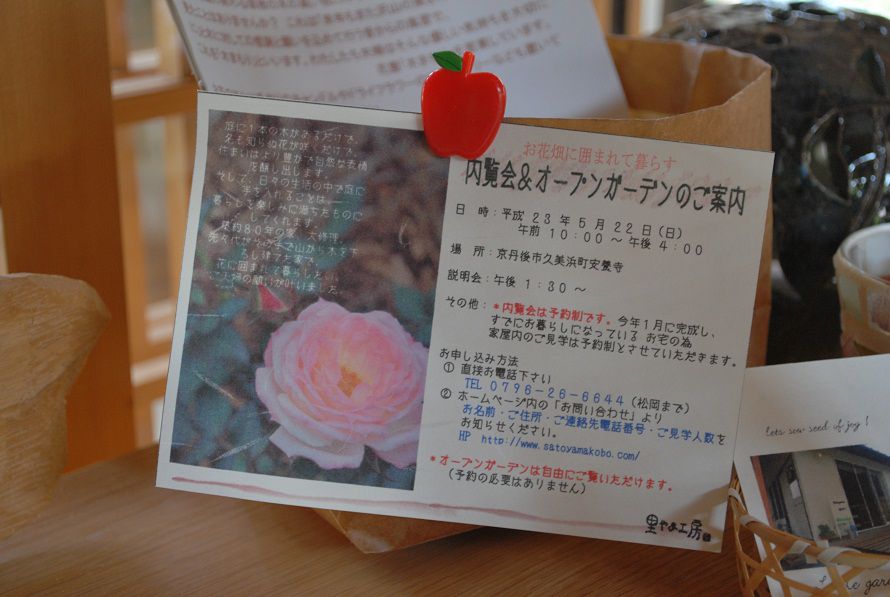 庭に１本の木があるだけで、
名も知らぬ花が咲くだけで、
住まいはより豊かで自然な表情
を醸し出します。
そして、日々の生活の中で庭に
手を入れることは
暮らしを楽しみに満ちたものに
してくれます。
築約８０年の家を大修理。
先々代からの手で山から木を下
ろし建てた家で、
花に囲まれて暮らしたい。
ご夫婦の願いが叶いました。
お花畑に囲まれて暮らす
内覧会＆オープンガーデンのご案内
日 時：平成 ２３ 年 ５月 ２２ 日（日）
午前 １０：００ ～ 午後 ４：００
場 所：京丹後市久美浜町安養寺
説明会：午後 １：３０ ～
その他：＊内覧会は予約制です。今年１月に完成し、
すでにお暮らしになっている お宅の為
家屋内のご見学は予約制とさせていただきます。
お申し込み方法
① 直接お電話下さい
TEL ０７９６－２６－６６４４（松岡まで）
② ホームページ内の「お問い合わせ」より
お名前・ご住所・ご連絡先電話番号・ご見学人数を
お知らせください。
HP http://www.satoyamakobo.com/
＊オープンガーデンは自由にご覧いただけます。
（予約の必要はありません）
里やま工房
Lets sow seed of joy !